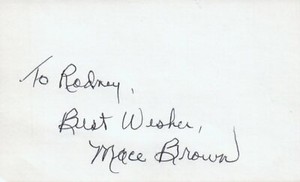 To Rodney,
Best Wishes,
Mace Brown